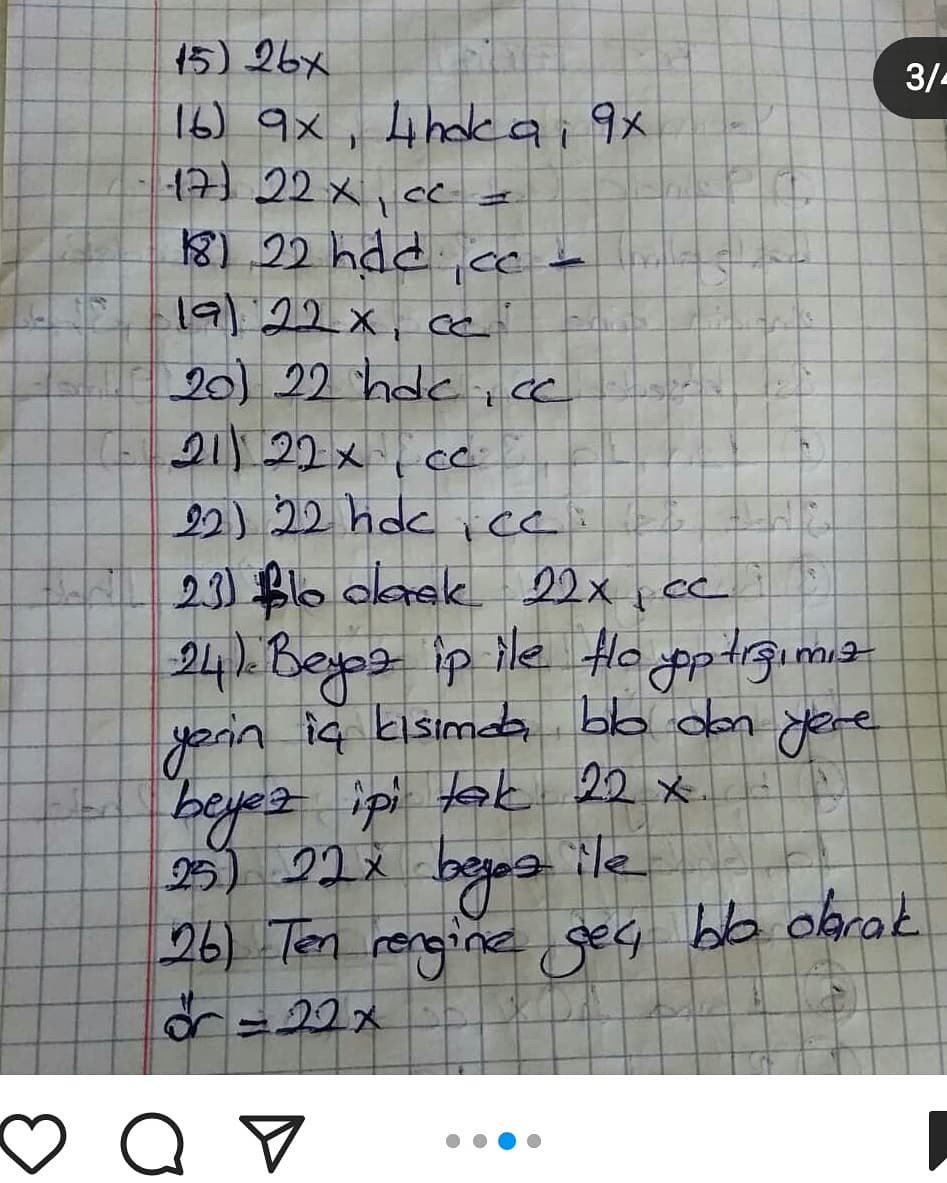 3/4
15) 26x
16) 9x, 4hdc a, 9x
17) 22 x, cc =
18) 22 hdc, cc -
19) 22 x, cc
20) 22 hdc, cc
21) 22 x, cc
22) 22 hdc, cc
23) flo olarak 22x, cc
24) Beyaz ip ile flo yaptığımız
yerin iç kısımda blo olan yere
beyaz ipi tak 22 x.
25) 22x beyaz ile
26) Ten rengine geç blo olarak
ör = 22x